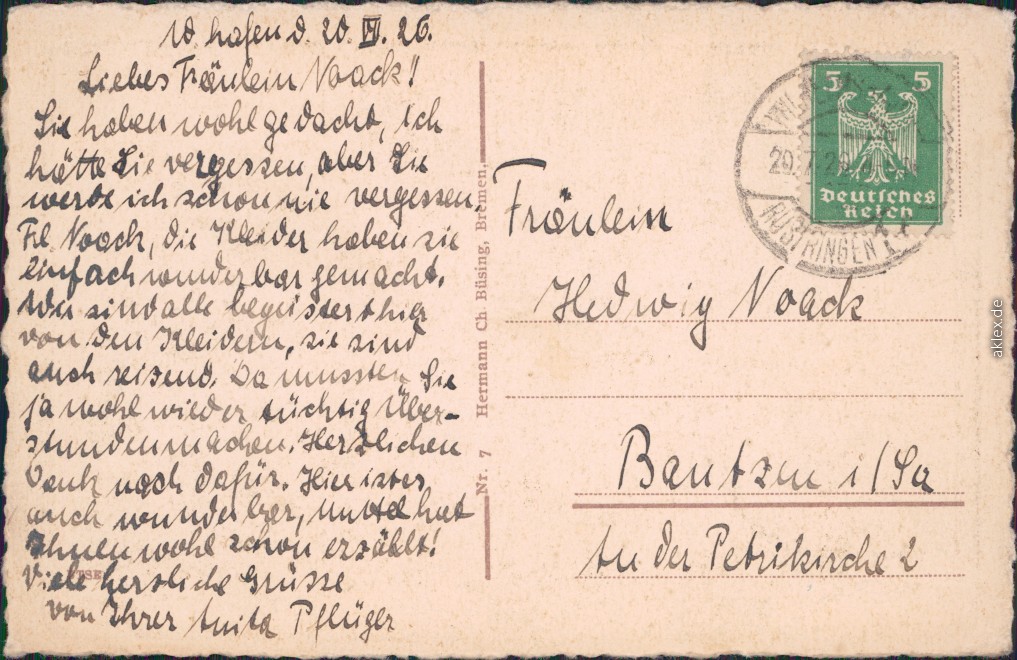 W. hafen d. 20. VII. 26.
Liebes Fräulein Noack!
Sie haben wohl gedacht, ich
hätte Sie vergessen, aber Sie
werde ich schon nie vergessen.
Frl. Noack, die Kleider haben sie
einfach wunderbar gemacht.
Wir sind alle begeistert hier
von den Kleidern, sie sind
auch reisend. Da mussten Sie
ja wohl wieder tüchtig Über-
stunden machen. Herzlichen
Dank noch dafür. Hier ist es
auch wunderbar, Mutti hat
Ihnen wohl schon erzählt!
Viele herzliche Grüsse
von Ihrer Anita Pflüger
Nr. 7 Hermann Ch. Büsing, Bremen.
5 5
Deutsches
Reich
RÜSTRINGEN
Fräulein
Hedwig Noack
Bautzen i/Sa
An der Petrikirche 2
aklex.de